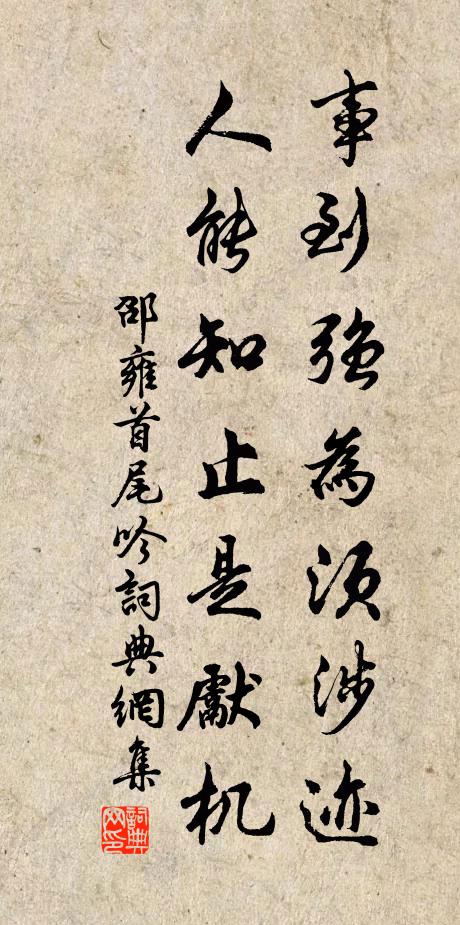 事到強為須涉迹
人能知止是獻机
邵雍首尾吟詞典網集
詞典网印